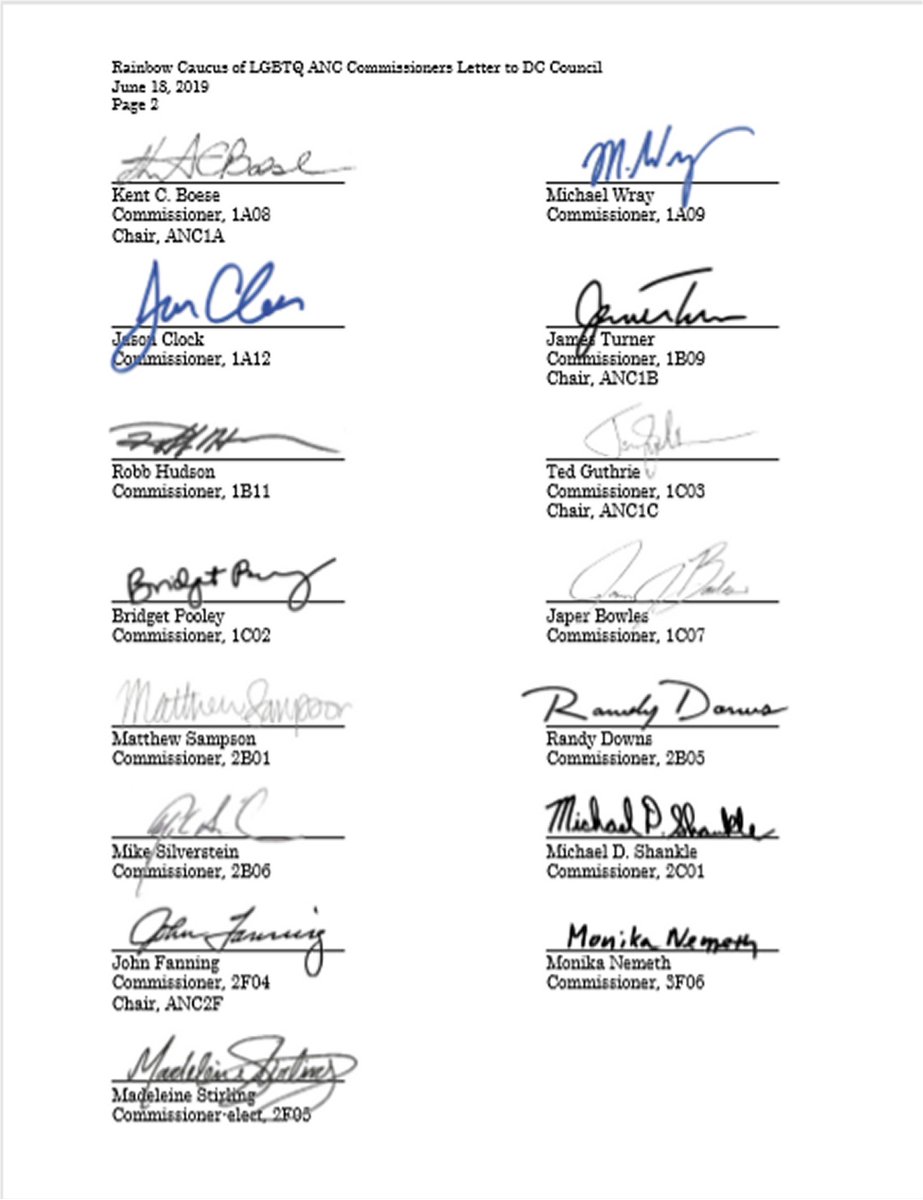 Rainbow Caucus of LGBTQ ANC Commissioners Letter to DC Council
June 18, 2019
Page 2
Kent C. Boese
Commissioner, 1A08
Chair, ANC1A
M. Wray
Michael Wray
Commissioner, 1A09
Jason Clock
Commissioner, 1A12
James Turner
Commissioner, 1B09
Chair, ANC1B
Robb Hudson
Commissioner, 1B11
Ted Guthrie
Commissioner, 1C03
Chair, ANC1C
Bridget
Bridget Pooley
Commissioner, 1C02
Japer Bowles
Commissioner, 1C07
Matthew Sampson
Matthew Sampson
Commissioner, 2B01
Randy Downs
Randy Downs
Commissioner, 2B05
Mike Silverstein
Commissioner, 2B06
Michael D. Shankle
Michael D. Shankle
Commissioner, 2C01
John Fanning
John Fanning
Commissioner, 2F04
Chair, ANC2F
Monika Nemeth
Monika Nemeth
Commissioner, 3F06
Madeleine Stirling
Madeleine Stirling
Commissioner-elect, 2F05